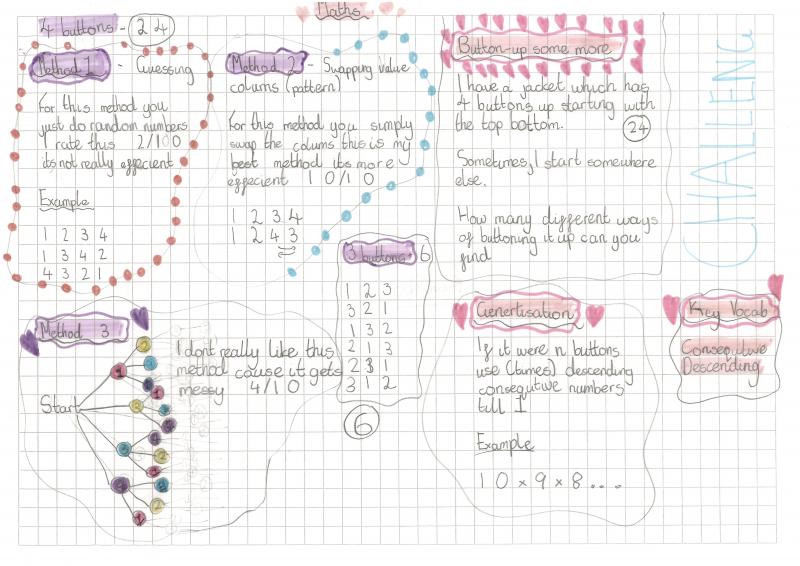 Maths
4 buttons - 24
Method 1 - Guessing
For this method you
just do random numbers
I rate this 2/100
its not really effecient
Example
1 2 3 4
1 3 4 2
4 3 2 1
Method 2 - Swapping value
columns (pattern)
For this method you simply
swap the colums this is my
best method its more
effecient 10/10
1 2 3 4
1 2 4 3
Button-up some more
I have a jacket which has
4 buttons up starting with
the top bottom.
24
Sometimes, I start somewhere
else.
How many different ways
of buttoning it up can you
find
CHALLENG
3 buttons - 6
1 2 3
3 2 1
1 3 2
2 1 3
2 3 1
3 1 2
6
Method 3
I dont really like this
method cause it gets
messy 4/10
Start
Genertisation
If it were n buttons
use (times) descending
consequtive numbers
till 1
Example
10 × 9 × 8 . . . .
Key Vocab
Consequtive
Descending